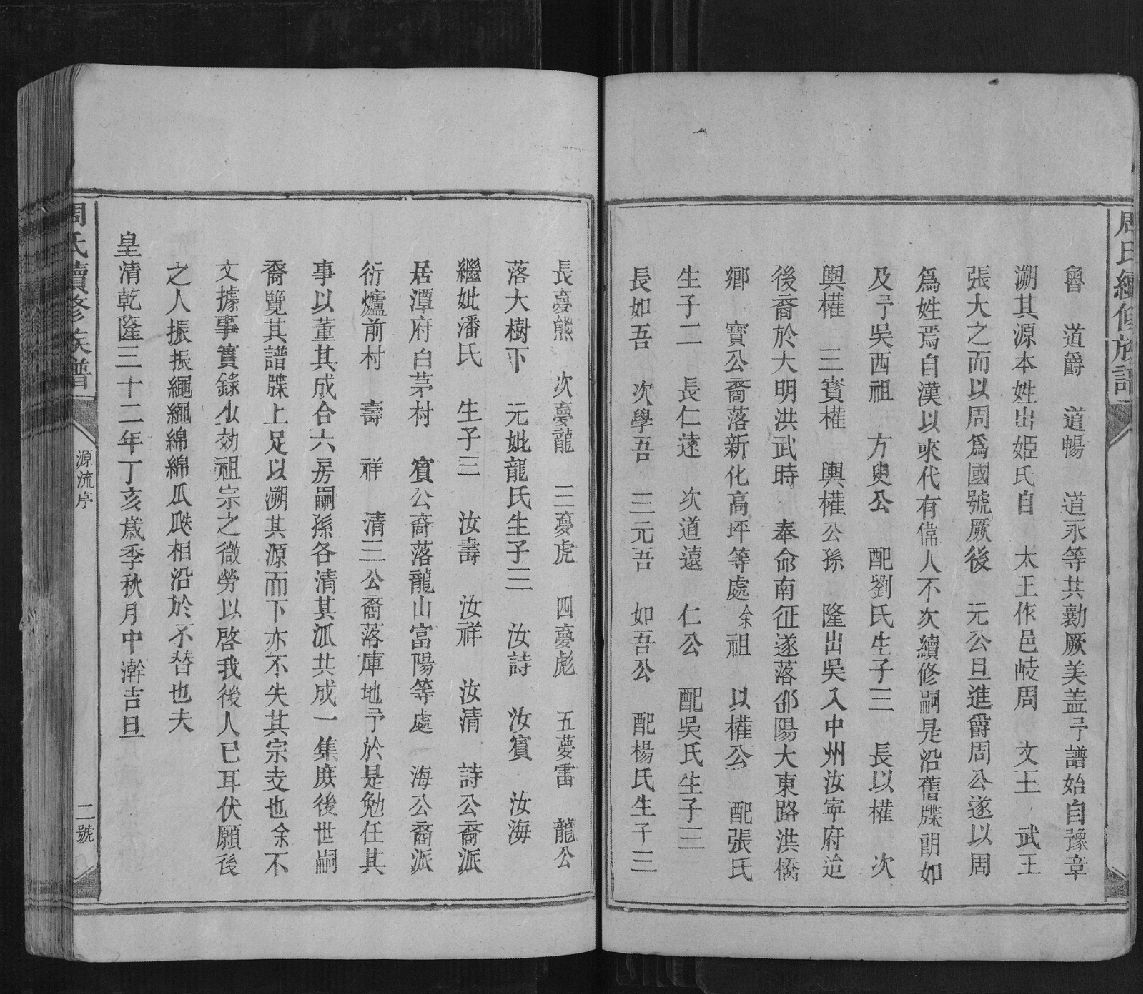 周氏續修族譜
魯 道爵 道暢 道永等共勷厥美盖予譜始自豫章
溯其源本姓出姬氏自 太王作邑岐周 文王 武王
張大之而以周爲國號厥後 元公旦進爵周公遂以周
爲姓焉自漢以來代有偉人不次續修嗣是沿舊牒朗如
及予吳西祖 方叟公 配劉氏生子三 長以權 次
與權 三賓權 與權公孫 隆出吳入中州汝寧府迨
後裔於大明洪武時 奉命南征遂落邵陽大東路洪橋
鄉 寶公裔落新化高坪等處余祖 以權公 配張氏
生子二 長仁遠 次道遠 仁公 配吳氏生子三
長如吾 次學吾 三元吾 如吾公 配楊氏生子三
長夢熊 次夢龍 三夢虎 四夢彪 五夢雷 龍公
落大樹下 元妣龍氏生子三 汝詩 汝賓 汝海
繼妣潘氏 生子三 汝壽 汝祥 汝清 詩公裔派
居潭府白茅村 賓公裔落龍山富陽等處 海公裔派
衍爐前村 壽 祥 清三公裔落庫地予於是勉任其
事以董其成合六房嗣孫各清其派共成一集庶後世嗣
裔覽其譜牒上足以溯其源而下亦不失其宗支也余不
文據事實錄少効祖宗之微勞以啓我後人已耳伏願後
之人振振繩繩綿綿瓜瓞相沿於不替也夫
皇清乾隆三十二年丁亥歲季秋月中澣吉旦
周氏續修族譜
源流序
二號